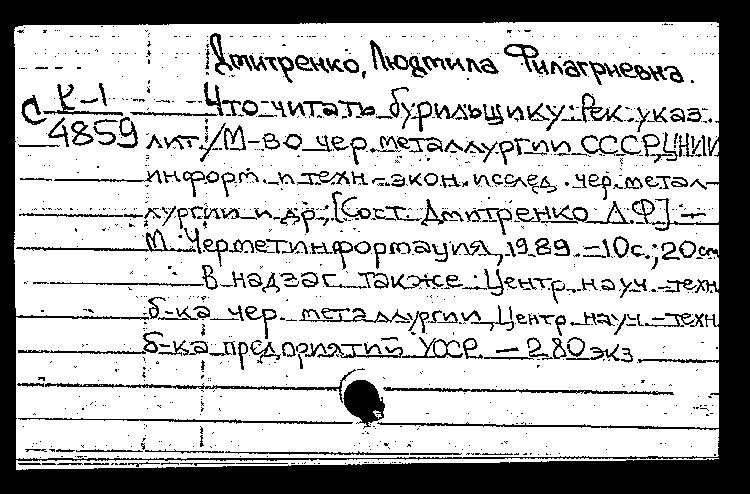 Дмитренко, Людмила Филагриевна.
С К-1
4859
Что читать бурильщику: Рек. указ.
лит. / М-во чер. металлургии СССР, ЦНИИ
информ. и техн.-экон. исслед. чер. метал-
лургии и др.; [Сост. Дмитренко Л.Ф.] -
М.: Черметинформация, 1989. - 10 с.; 20 см
В надзаг. также: Центр. науч.-техн.
б-ка чер. металлургии, Центр. науч.-техн.
б-ка предприятий УССР. - 280 экз.